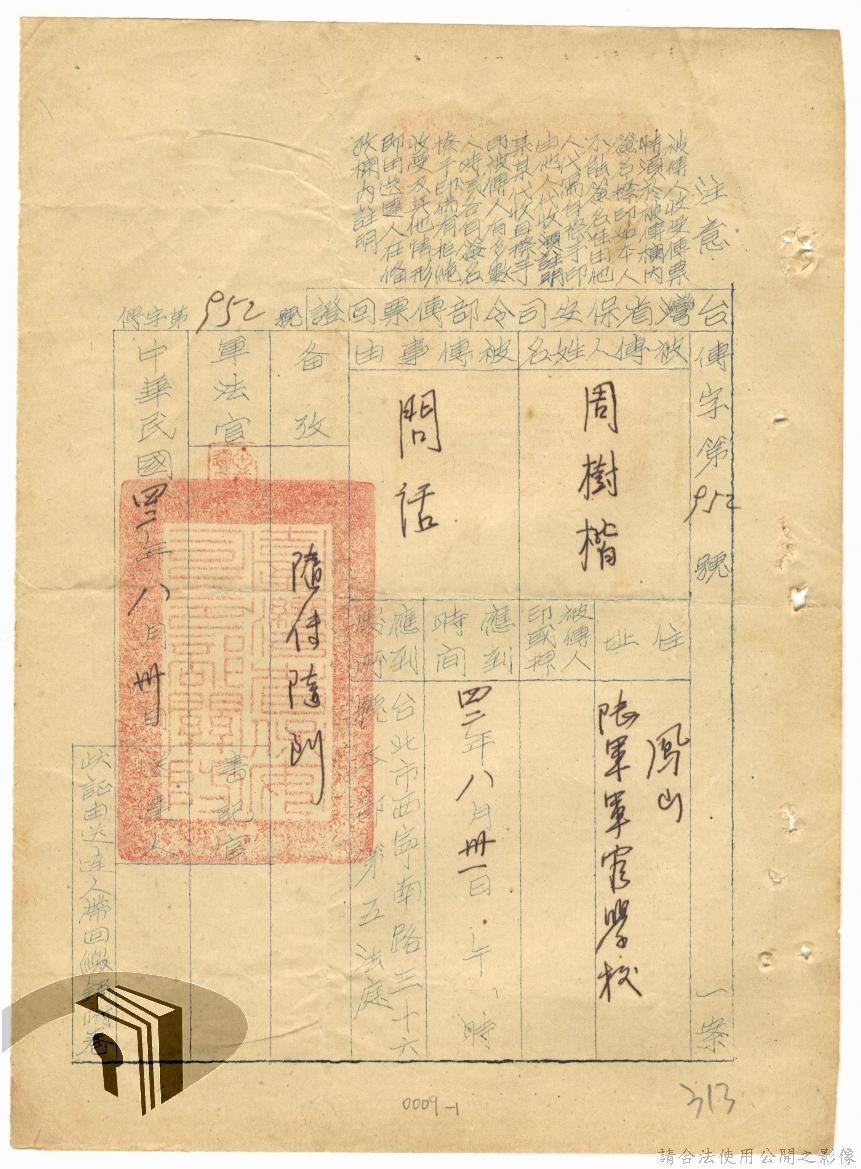 注意
被傳人收受傳票
時須於被傳欄內
簽名捺印如本人
不能簽名任由他
人代寫自捺手印
由他人代收須註明
某某代收自捺手
印被傳人有多數
人時須各自簽名
捺手印倘有拒絕
收受及其他情形
即由送達人在備
攷欄內註明
台灣省保安司令部傳票回證
傳字第952號
傳字第952號 一案
被傳人姓名
周樹楷
住址
鳳山
陸軍軍官學校
被傳人
印或押
被傳事由
問話
應到時間
四二年八月卅一日 午 時
應到處所
台北市西寧南路三十六
號本部第五法庭
備攷
隨傳隨到
軍法官
書記官
中華民國四二年八月卅日
送達人
此証由送達人帶回繳
0009-1
313
請合法使用公開之影像